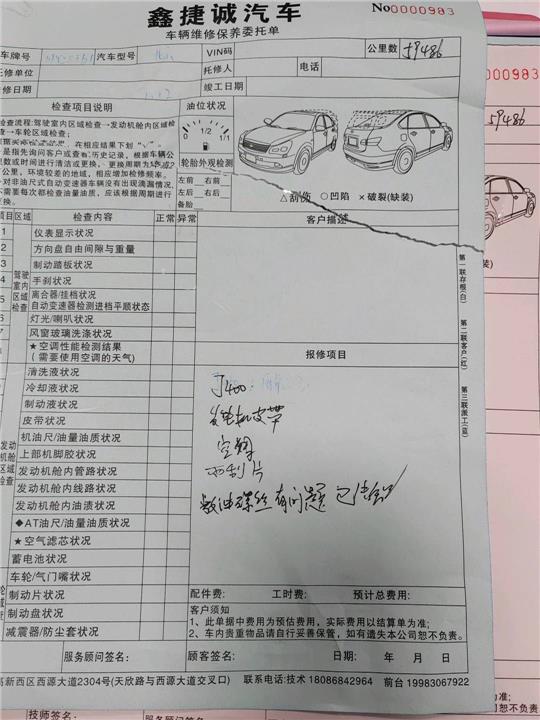 鑫捷诚汽车
No0000983
车辆维修保养委托单
车牌号 汽车型号 VIN码 公里数 59486
托修单位 托修人 电话
修日期 竣工日期
0000983
59486
检查项目说明 油位状况
检查流程:驾驶室内区域检查→发动机舱内区域检
查→车轮区域检查;
在相应结果下划
是指先询问客户或查看历史记录,根据车辆公
里数或时间进行清洁或更换,更换周期为
万公里,环境较差的地域,相应增加检修频率。
对非油尺式自动变速器车辆没有出现滴漏情况,
不需要每次都检查油量油质,应该根据周期进行
更换。
0 1/2 1/1
轮胎外观检测
左前 右前
左后 右后
备胎
△刮伤 ○凹陷 ×破裂(缺装)
缺装)
项目 区域 检查内容 正常 异常 客户描述
1 仪表显示状况
2 方向盘自由间隙与重量
3 制动踏板状况
4 手刹状况
5 离合器/挂档状况
自动变速器检测进档平顺状态
6 灯光/喇叭状况
风窗玻璃洗涤状况
★空调性能检测结果
(需要使用空调的天气)
驾驶室内区域检查
报修项目
清洗液状况
冷却液状况
制动液状况
皮带状况
机油尺/油量油质状况
上部机脚胶状况
发动机舱内管路状况
发动机舱内线路状况
发动机舱内油渍状况
◆AT油尺/油量油质状况
★空气滤芯状况
蓄电池状况
发动机舱区域检查
J400
发电机皮带
空调
刹片
放油螺丝有问题
第一联存根(白)
第二联客户(红)
第三联派工(蓝)
车轮/气门嘴状况
制动片状况
制动盘状况
减震器/防尘套状况
配件费: 工时费: 预计总费用:
客户须知
1、此单据中费用为预估费用,实际费用以结算单为准;
2、车内贵重物品请自行妥善保管,如有遗失本公司恕不负责。
服务顾问签名: 顾客签名: 日期: 年 月 日
高新西区西源大道2304号(天欣路与西源大道交叉口) 联系电话:技术 18086842964 前台 19983067922
技师签名: 服务顾问签名: